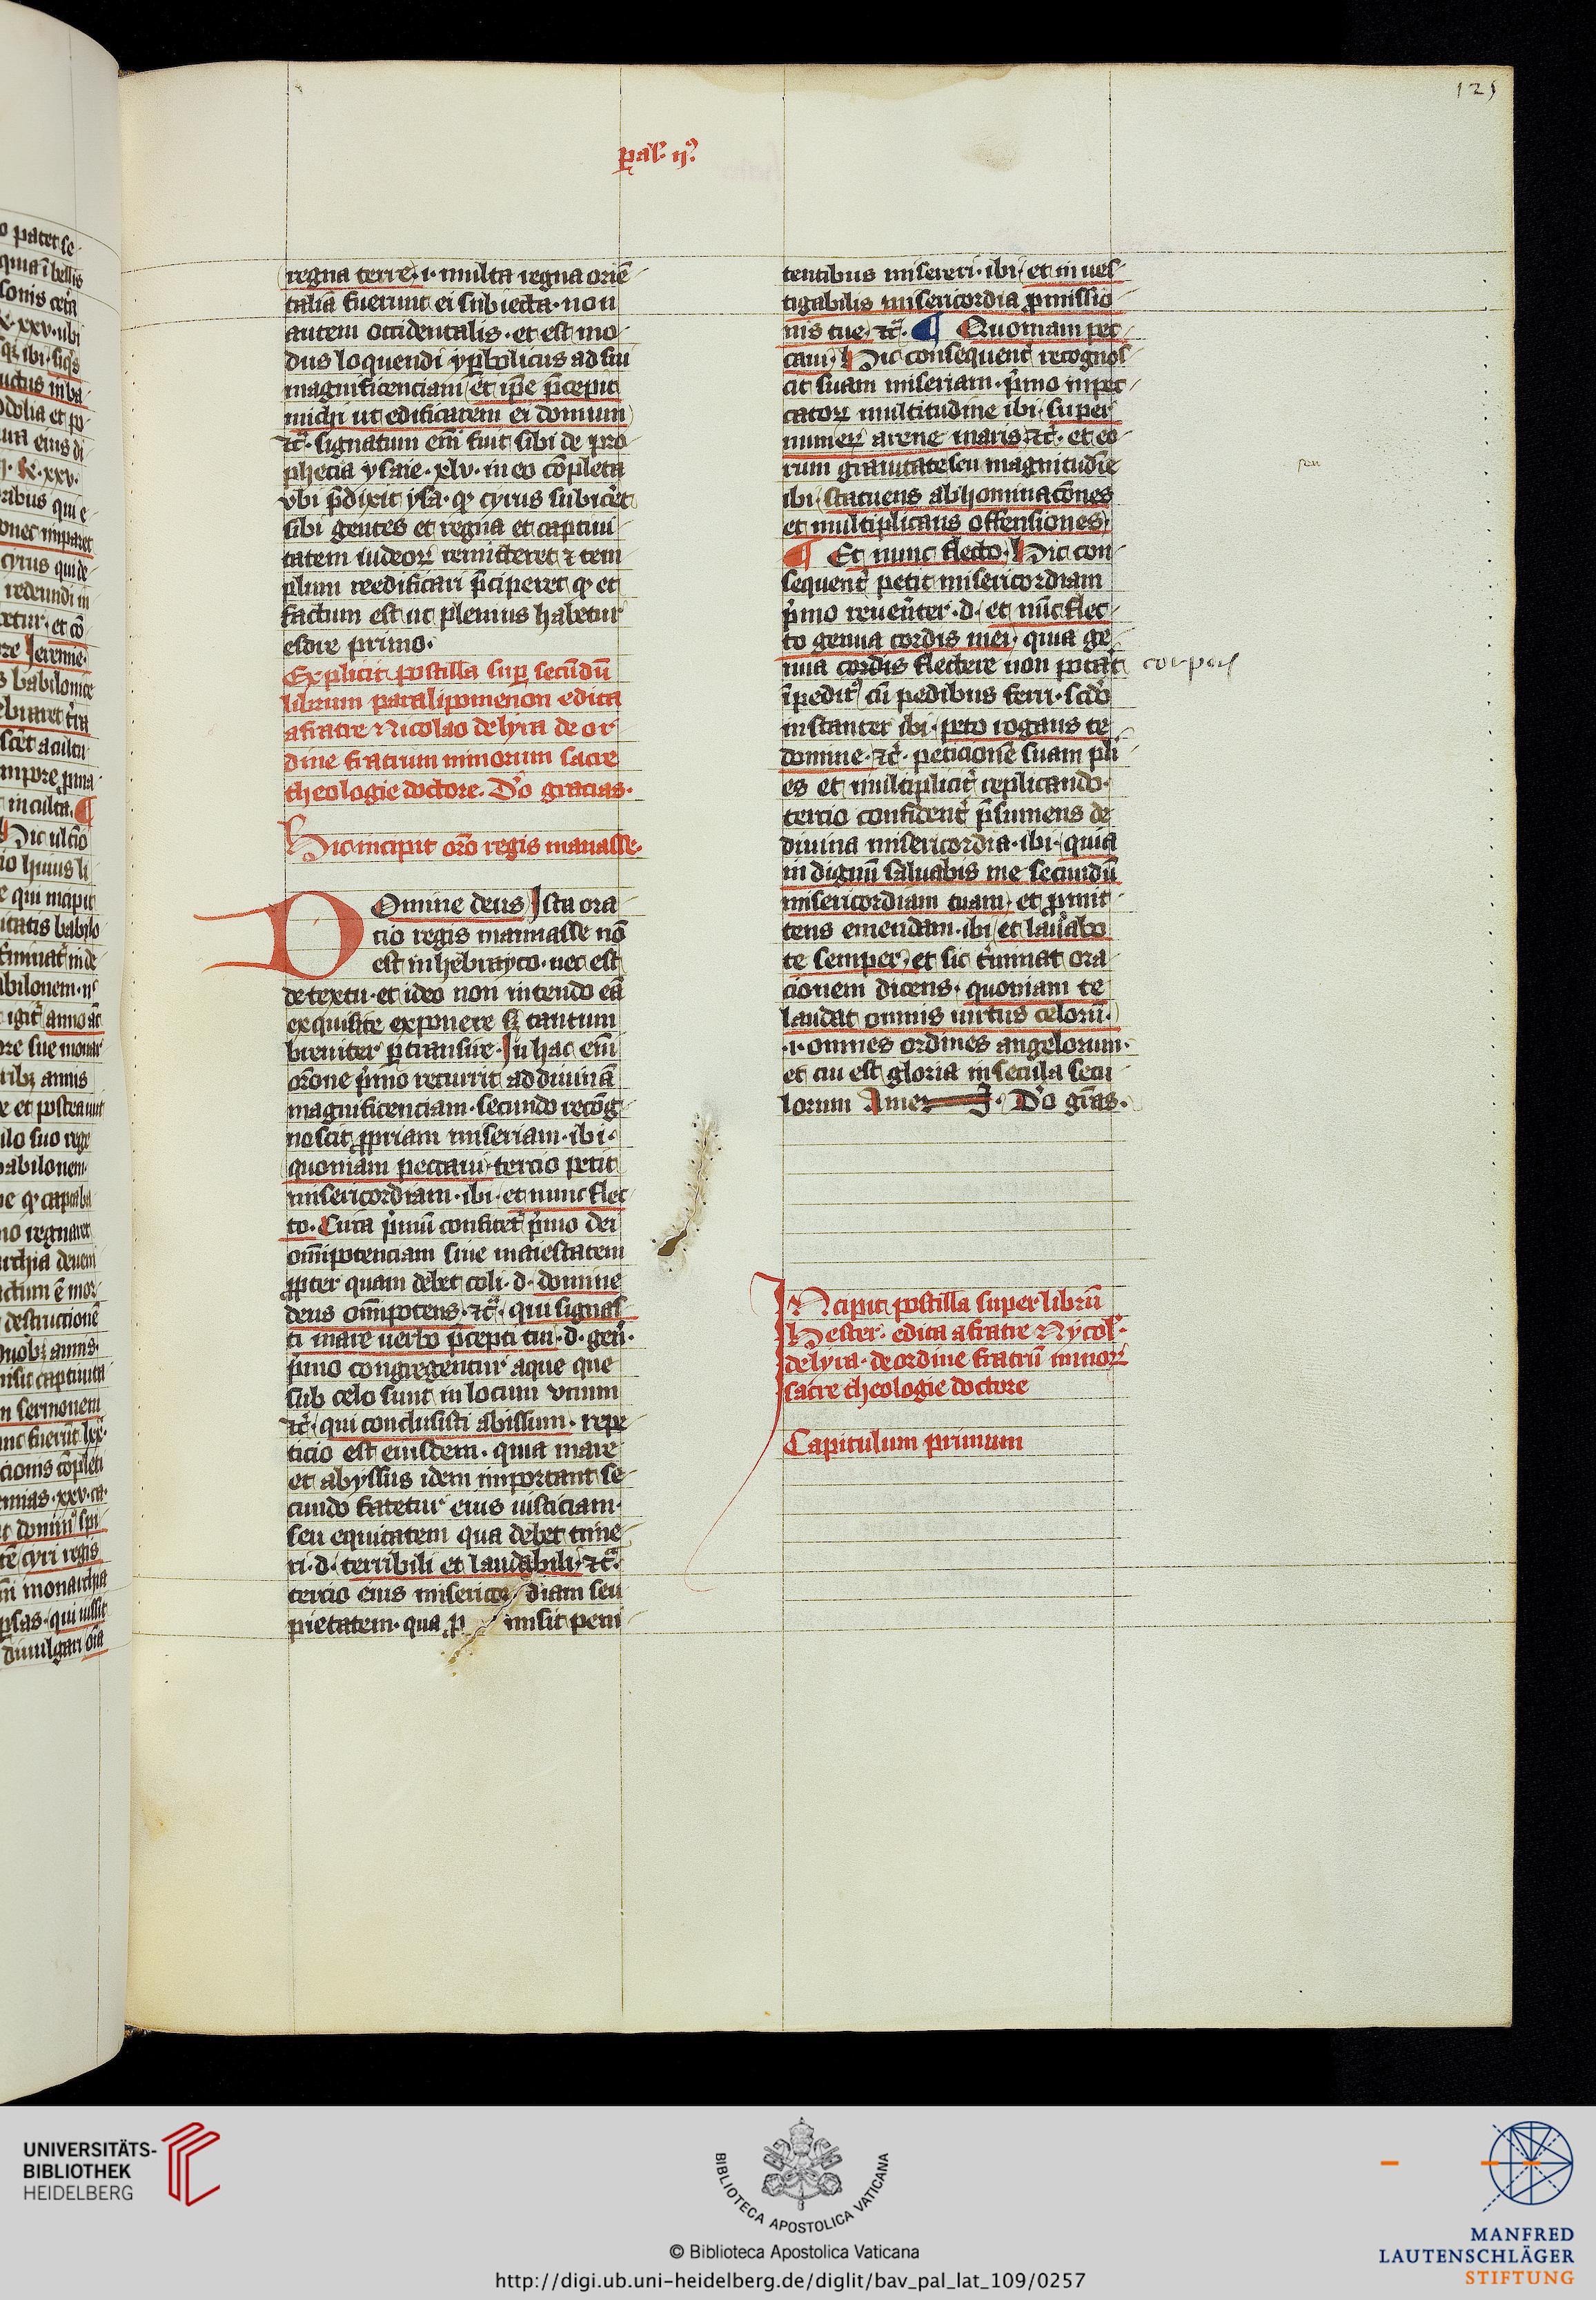 125
p̲al' ij9
regna terre · i · multa regna oriē
talia fuerunt ei subiecta · non
autem occidentalis · et est mo
dus loquendi yp̲bolicus ad sui
magnificenciam et ip̄e p̄cepit
michi ut edificarem ei domum
⁊c̄ · signatum em̄ fuit sibi de pro
phecia ysaie · xlv · in eo cōpleta
vbi p̄dixit ysa · ꝙ cyrus subicēt
sibi gentes et regna et captiui
tatem iudeoꝝ remitteret ⁊ tem
plum reedificari p̄ciperet ꝙ et
factum est ut plenius habetur
esdre primo ·
Explicit postilla suꝑ secūdū
librum paralipomenon edita
a fratre Nicolao de lyra de or
dine fratrum minorum sacre
theologie doctore. Dō gracias ·
Hic incipit orō regis manasse ·
DOmine deus Ista ora
tio regis mannasse nō
est in hebrayco · nec est
de textu · et ideo non intendo eā
exquisite exponere sꝫ tantum
breuiter ꝑtransire · In hac em̄
orōne p̄mo recurrit ad diuinā
magnificenciam · secundo recōg
noscit ꝓpriam miseriam · ibi ·
quoniam peccaui · tercio petit
misericordiam · ibi · et nunc flec
to · Circa p̄mū confitet̄ p̄mo dei
om̄ipotenciam siue maiestatem
ꝓpter quam debet coli · d · domine
deus om̄ipotens · ⁊c̄ · qui signas
ti mare uerbo p̄cepti tui · d · gen̄ ·
p̄mo congregentur aque que
sub celo sunt in locum vnum
⁊c̄ · qui conclusisti abissum · repe
ticio est eiusdem · quia mare
et abyssus idem important se
cundo fatetur eius iusticiam ·
seu equitatem qua debet time
ri · d · terribili et laudabili ⁊c̄ ·
tercio eius misericordiam seu
pietatem · qua ꝓmisit peni
tentibus misereri · ibi · et in ues
tigabilis misericordia ꝓmissio
nis tue ⁊c̄ · ¶ Quoniam pec
caui · Hic consequent̄ recognos
cit suam miseriam · p̄mo in pec
catoꝝ multitudine ibi · super
numeꝝ arene maris ⁊c̄ · et eo
rum grauitate seu magnitudīe
seu
ibi · statuens abhominacōnes
et multiplicans offensiones ·
¶ Et nunc flecto · Hic con
sequent̄ petit misericordiam
p̄mo reuen̄ter · d · et nūc flec
to genua cordis mei · quia ge
nua cordis flectere non potat̄ corpor̄
īpedit9 cū pedibus ferri · scdō
instanter ibi · peto rogans te
domine · ⁊c̄ · peticionē suam pli
es et multiplicit̄ replicando ·
tercio confident̄ p̄sumens de
diuina misericordia · ibi · quia
indignū saluabis me secundū
misericordiam tuam · et ꝓmit
tens emendam · ibi et laudabo
te semper · et sic t̄minat ora
cionem dicens · quoniam te
laudat omnis uirtus celorū ·
· i · omnes ordines angelorum ·
et cui est gloria in secula secu
lorum Amen · Dō grās ·
INcipit postilla super librū
Hester · edita a fratre Nycol' ·
de lyra · de ordine fratrū minoꝝ
sacre theologie doctore
Capitulum primum
UNIVERSITÄTS-
BIBLIOTHEK
HEIDELBERG
BIBLIOTECA APOSTOLICA VATICANA
© Biblioteca Apostolica Vaticana
http://digi.ub.uni-heidelberg.de/diglit/bav_pal_lat_109/0257
MANFRED
LAUTENSCHLÄGER
STIFTUNG